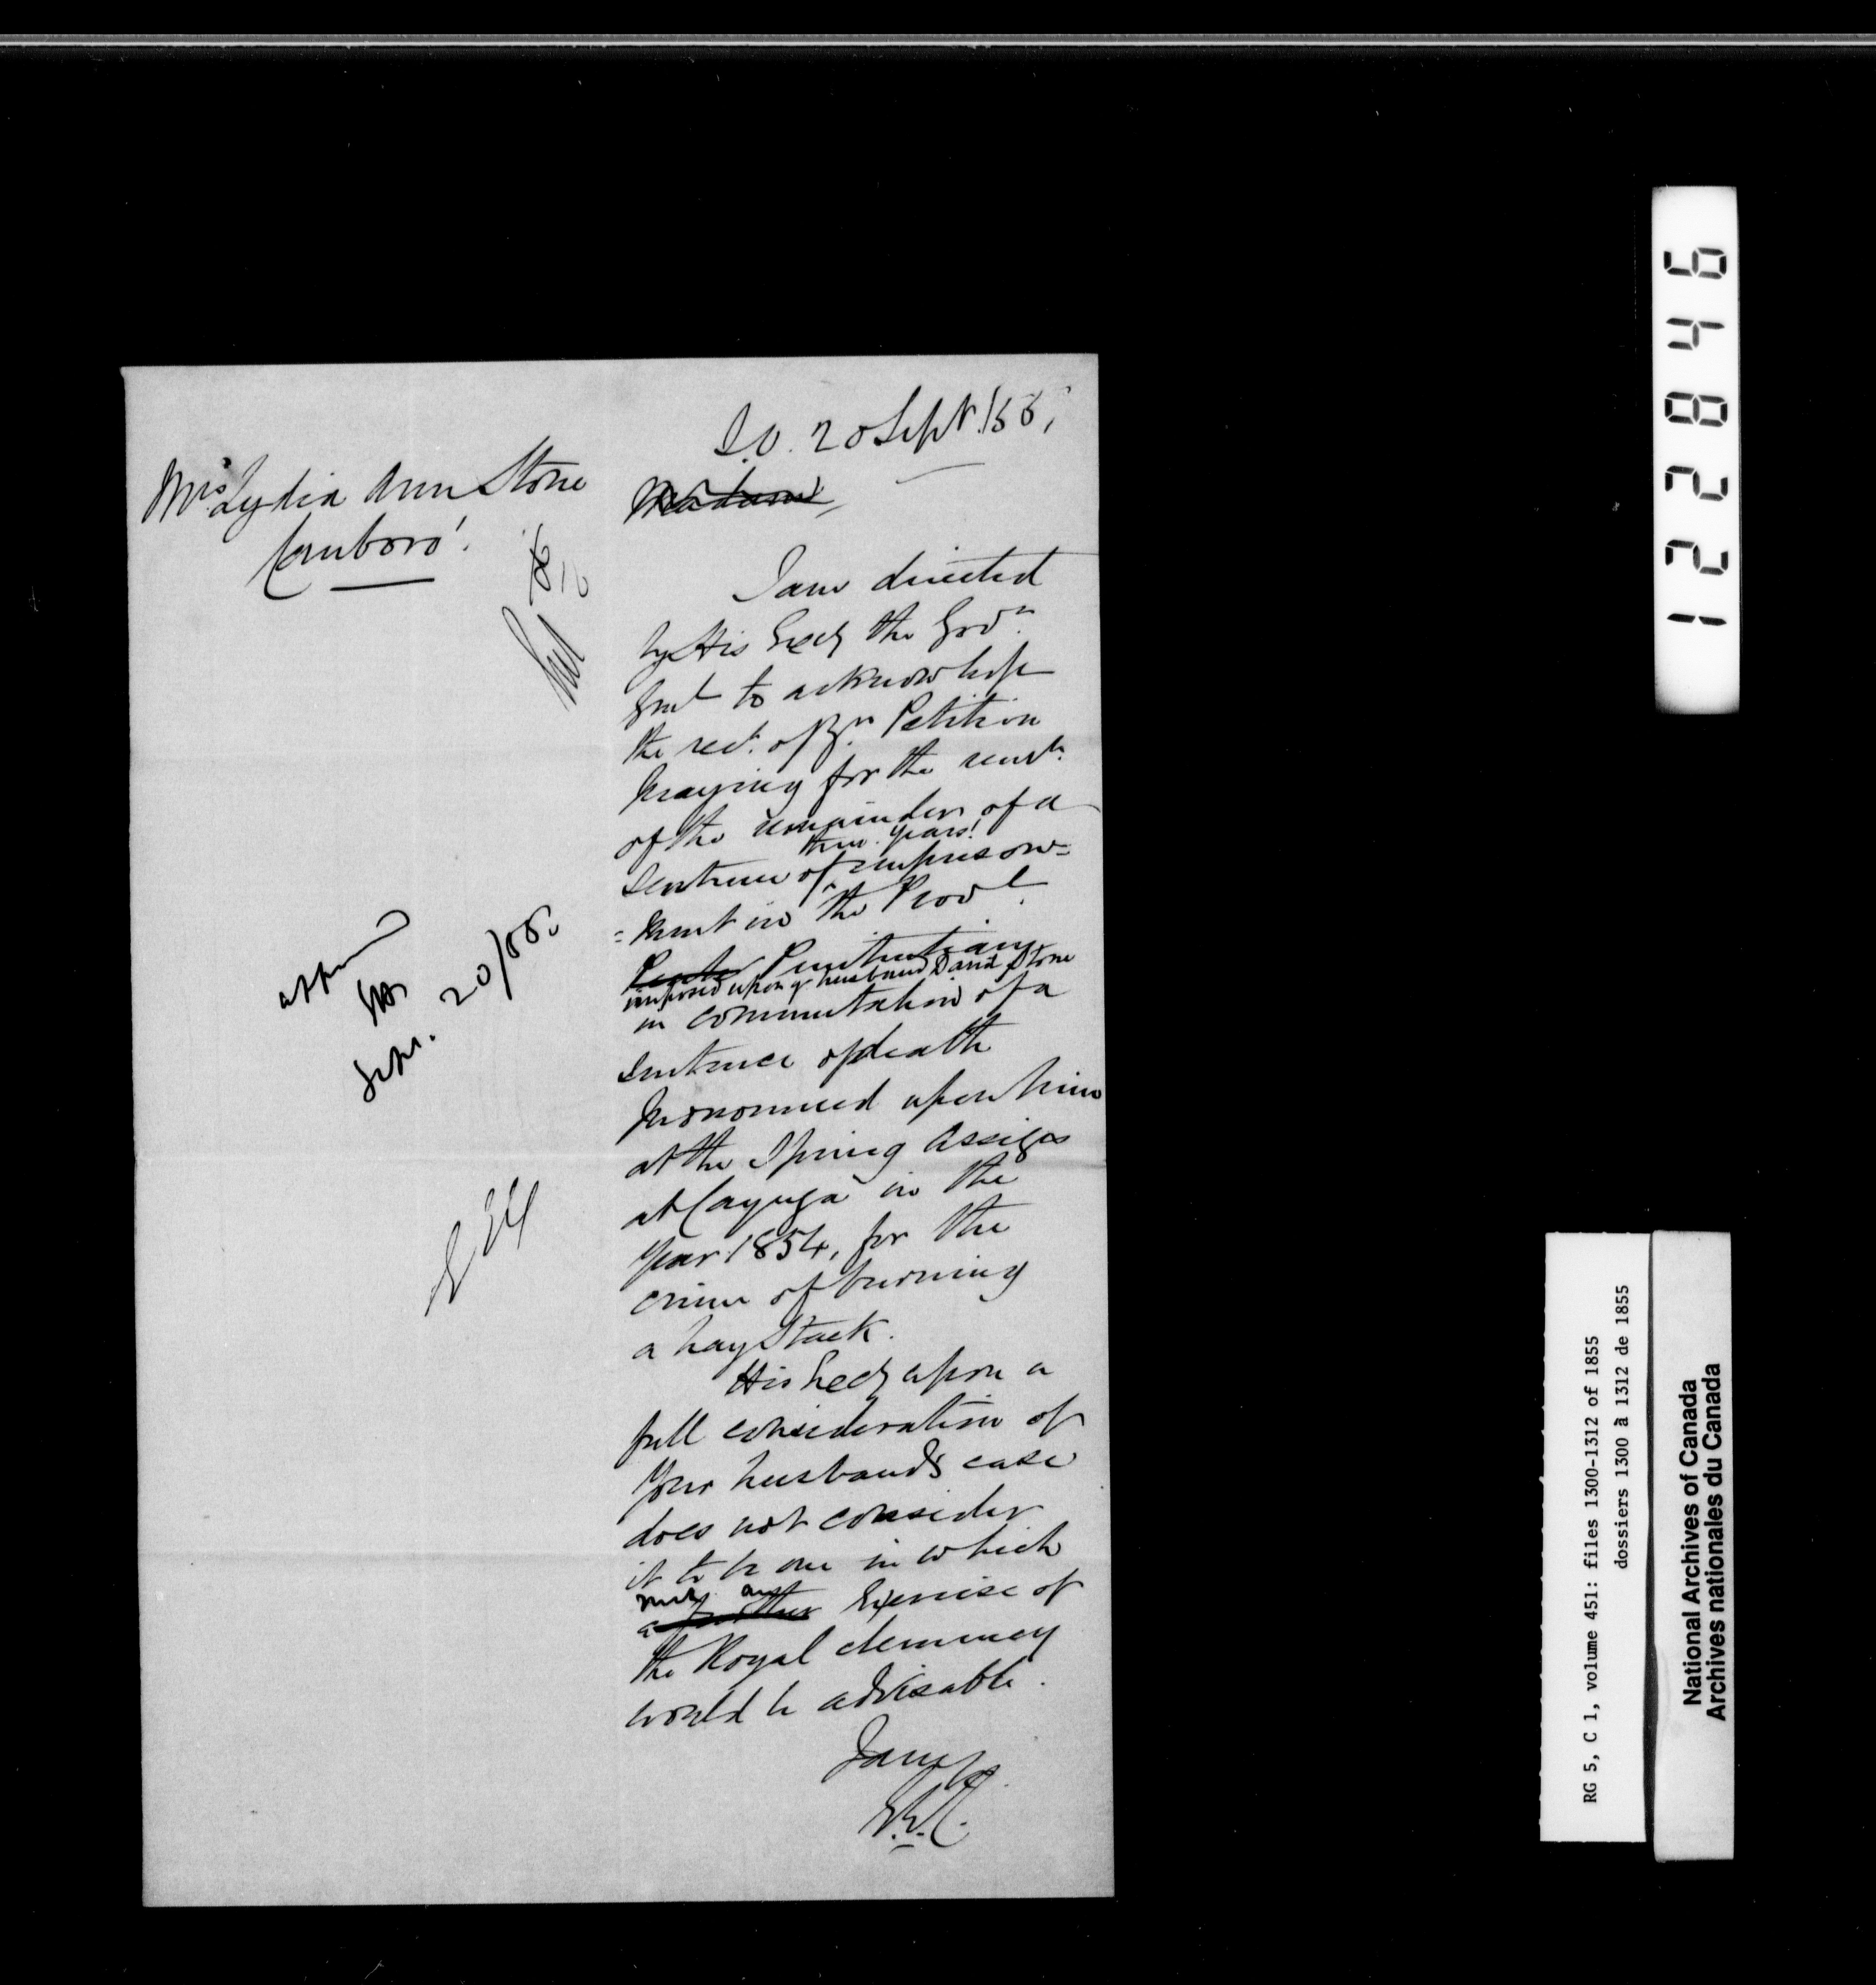 S.O. 20 Sept. 1855,
Mrs. Lydia Ann Stone
Canboro'.
Madam,
I am directed
by His Excy the Govr.
Genl to acknowledge
the rect. of yr. Petition
praying for the remn.
of the remainder of a
three years'
sentence of imprison=
=ment in the Provl.
Penitentiary
imposed upon yr husband David Stone
in commutation of a
sentence of death
pronounced upon him
at the Spring Assizes
at Cayuga in the
year 1854, for the
crime of burning
a hay stack.
His Excy upon a
full consideration of
your husband's case
does not consider
it to be one in which
any
a further Exercise of
the Royal clemency
would be advisable.
Sepr. 20/55.
122846
RG 5, C 1, volume 451: files 1300-1312 of 1855
dossiers 1300 à 1312 de 1855
National Archives of Canada
Archives nationales du Canada